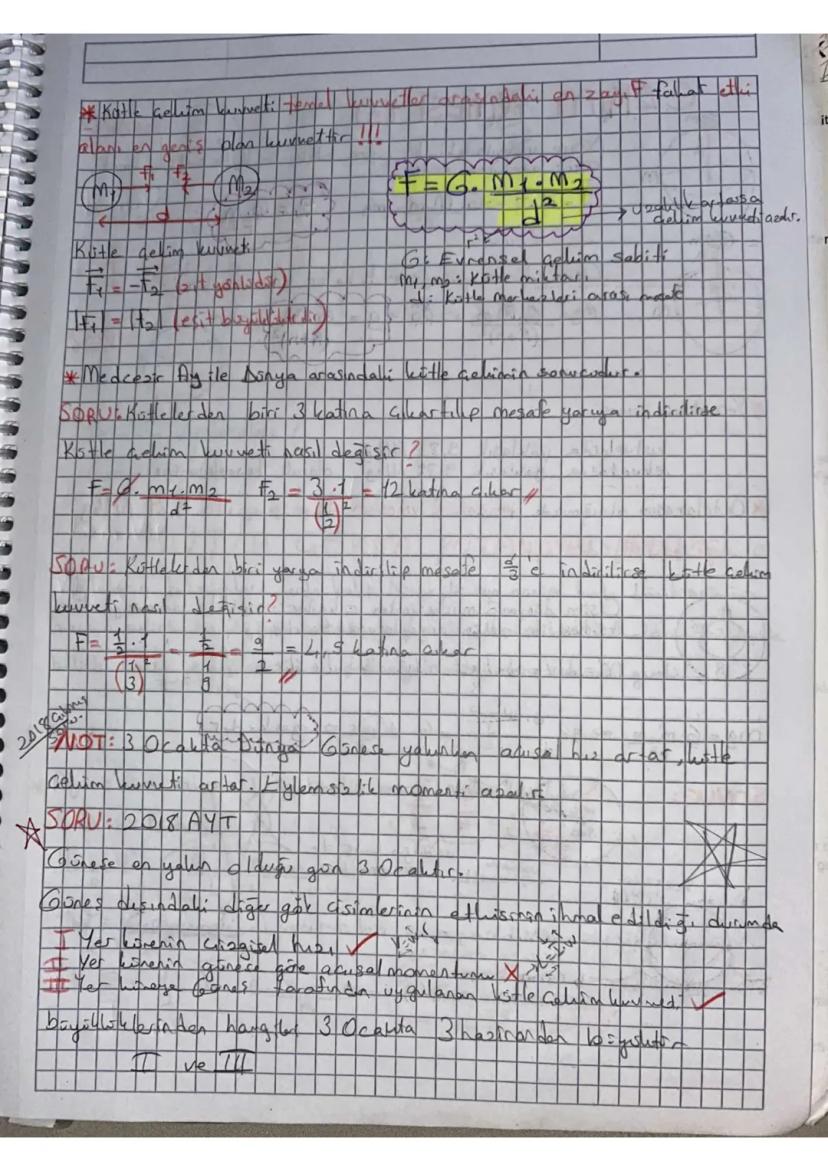 * Kütle Çekim kuvveti temel kuvvetler arasındaki en zayıf fakat etki
alanı en geniş olan kuvvettir !!!
m₁ F₁ F₂ m₂
d
F = G. m₁ . m₂ / d²
→ uzaklık artarsa
çekim kuvveti azalır.
Kütle çekim kuvveti
F₁ = -F₂ (zıt yönlüdür)
|F₁| = |F₂| (eşit büyüklüktedir)
G: Evrensel çekim sabiti
m₁, m₂ : Kütle miktarı
d: Kütle merkezleri arası
* Medcezir Ay ile Dünya arasındaki kütle çekimin sonucudur.
SORU: Kütlelerden biri 3 katına çıkartılıp mesafe yarıya indirilirse
Kütle çekim kuvveti nasıl değişir?
F = G. m₁.m₂ / d² F₂ = 3.1 / (1/2)² = 12 katına çıkar //
SORU: Kütlelerden biri yarıya indirilip mesafe d/3 'e indirilirse kütle çekim
kuvveti nasıl değişir?
F = 1/2 . 1 / (1/3)² = 1/2 / 1/9 = 9/2 = 4,5 katına çıkar //
2018
NOT: 3 Ocakta Dünya Güneşe yakınken açısal hız artar, kütle
çekim kuvveti artar. Eylemsizlik momenti azalır.
SORU: 2018 AYT
Güneşe en yakın olduğu gün 3 Ocaktır.
Güneş dışındaki diğer gök cisimlerinin etkisinin ihmal edildiği durumda
I Yer kürenin çizgisel hızı ✓
II Yer kürenin güneşe göre açısal momentumu X
III Yer küreye Güneş tarafından uygulanan kütle çekim kuvveti ✓
büyüklüklerinden hangileri 3 Ocakta 3 hazirandan büyüktür
I ve III